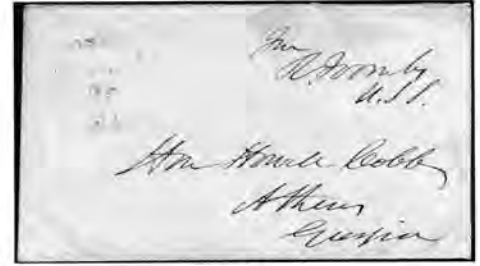 Free
R. Toombs
U.S.S.
Hon Howell Cobb
Athens
Georgia